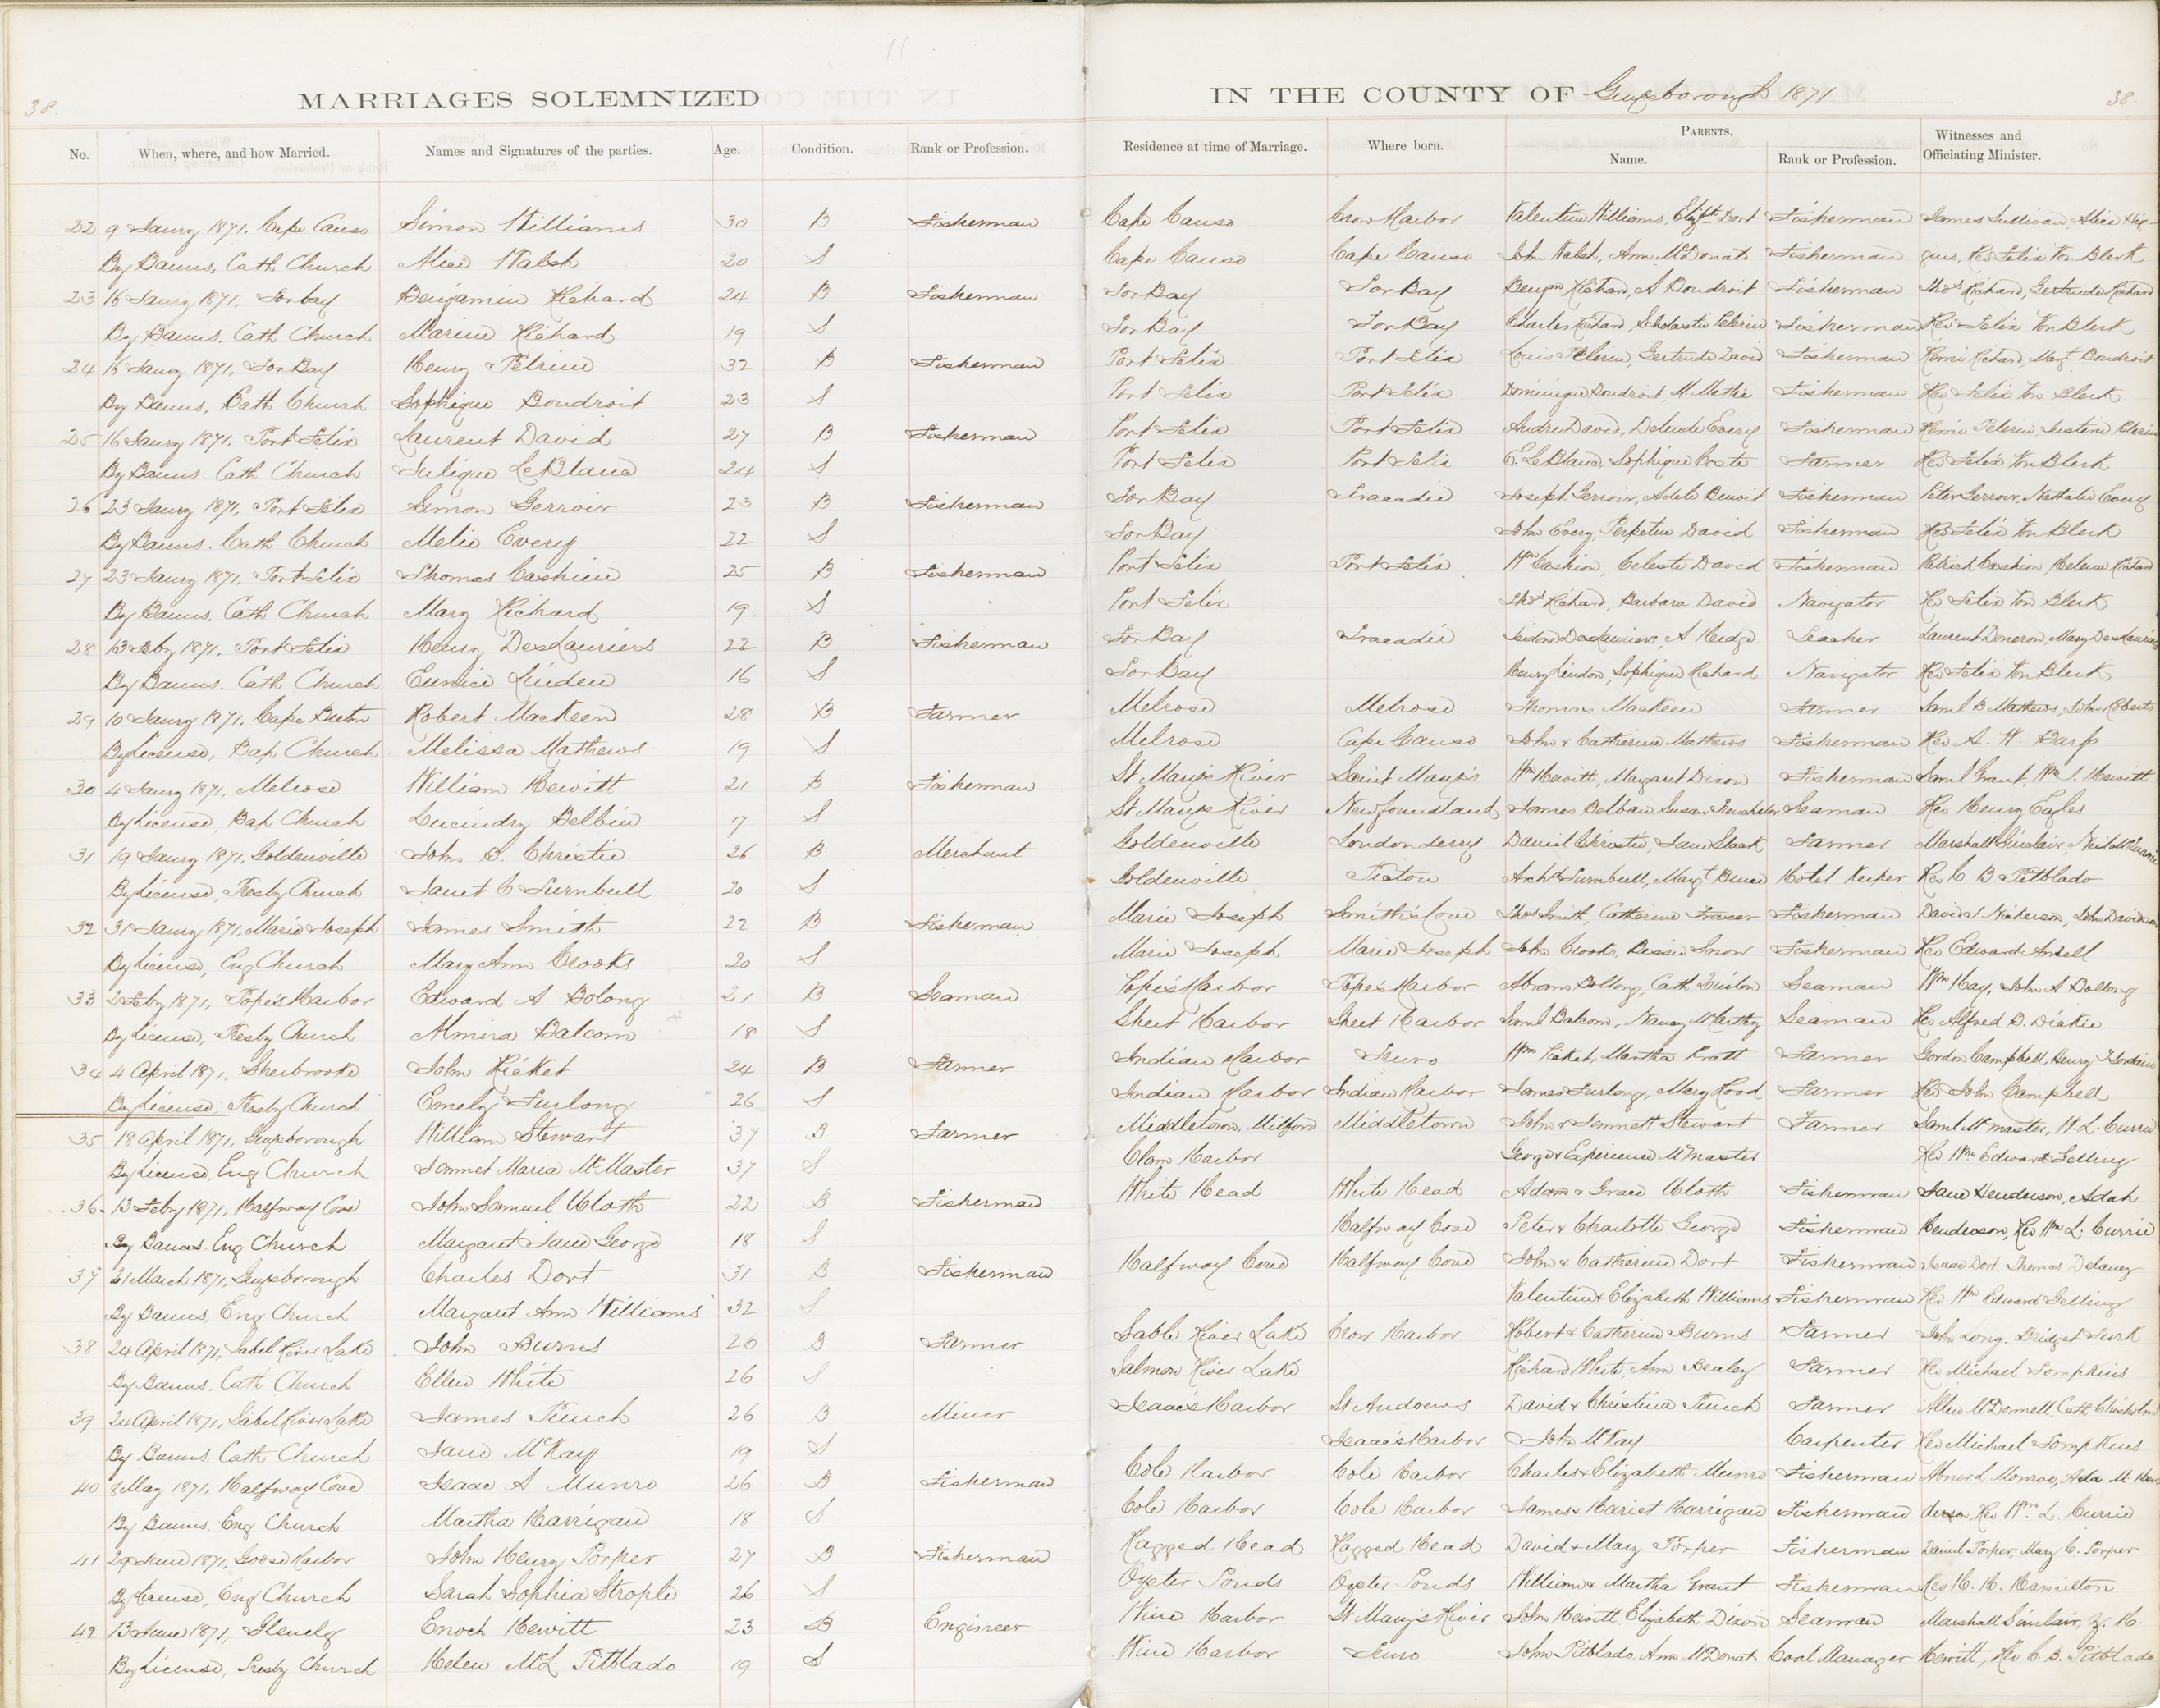 38. MARRIAGES SOLEMNIZED IN THE COUNTY OF Guysborough 1871 38
No. When, where, and how Married. Names and Signatures of the parties. Age. Condition. Rank or Profession. Residence at time of Marriage. Where born. PARENTS. Name. Rank or Profession. Witnesses and Officiating Minister.
22 9 Jaury 1871. Cape Canso Simon Williams 30 B Fisherman Cape Canso Crow Harbor Valentine Williams, Elizth Dort Fisherman James Sullivan, Alice Hig-
By Banns, Cath Church Alice Walsh 20 S Cape Canso Cape Canso John Walsh, Ann McDonah Fisherman gins, Rev Felix Von Blerk
23 16 Jaury 1871, Torbay Benjamin Richard 24 B Fisherman Tor Bay Tor Bay Benjn Richard, A Boudroit Fisherman Thos Richard, Gertrude Richard
By Banns. Cath Church Marine Richard 19 S Tor Bay Tor Bay Charles Richard, Scholastie Pelerin Fisherman Rev Felix Von Blerk
24 16 Jaury 1871, Tor Bay Henry Pelrine 32 B Fisherman Port Felix Port Felix Louis Pelerin, Gertrude David Fisherman Henri Richard, Margt Boudroit
By Banns, Cath Church Sophique Boudroit 23 S Port Felix Port Felix Dominique Boudroit, M. Mathie Fisherman Rev Felix Von Blerk
25 16 Jaury 1871, Port Felix Laurent David 27 B Fisherman Port Felix Port Felix Andre David, Delude Every Fisherman Henri Pelerin, Pelerin
By Banns. Cath Church Julique LeBlanc 24 S Port Felix Port Felix C. LeBlanc, Sophique Farmer Rev Felix Von Blerk
26 23 Jaury 1871, Port Felix Simon Gerroir 23 B Fisherman Tor Bay Tracadie Joseph Gerroir, Adele Benoit Fisherman Peter Gerroir, Nathalie Every
By Banns. Cath Church Melie Every 22 S Tor Bay John Every, Perpetue David Fisherman Rev Felix Von Blerk
27 23 Jaury 1871, Port Felix Thomas Cashien 25 B Fisherman Port Felix Port Felix Wm Cashion, Celeste David Fisherman Patrick Cashion, Helena Richard
By Banns. Cath Church Mary Richard 19 S Port Felix Thos Richard, Barbara David Navigator Rev Felix Von Blerk
28 13 Feby 1871. Port Felix Henry DesLauriers 22 B Fisherman Tor Bay Tracadie Isidore DesLauriers, A Teacher Laurent Doneron, Mary DesLauriers
By Banns. Cath Church Eunice Linden 16 S Tor Bay Henry Lindon, Sophique Richard Navigator Rev Felix Von Blerk
29 10 Jaury 1871. Cape Breton Robert MacKeen 28 B Farmer Melrose Melrose Thomas MacKeen Farmer Saml B Mathews, John Roberts
By License, Bap Church Melissa Mathews 19 S Melrose Cape Canso John & Catherine Mathews Fisherman Rev A. W. Barss
30 4 Jaury 1871, Melrose William Hewitt 21 B Fisherman St Mary's River Saint Mary's Wm Hewitt, Margaret Dixon Fisherman Saml Grant, Wm J. Hewitt
By License, Bap Church Lucindry Belbin 17 S St Marys River Newfoundland James Belban, Susan Seaman Rev Henry Eagles
31 19 Jaury 1871. Goldenville John D. Christie 26 B Merchant Goldenville Londonderry Daniel Christie, Jane Staak Farmer Marshall Sinclair,
By License, Presby Church Janet C Turnbull 20 S Goldenville Pictou Archd Turnbull, Margt Bruce Hotel Keeper Rev C B Pitblado
32 31 Jaury 1871, Marie Joseph James Smith 22 B Fisherman Marie Joseph Smith's Cove Thos Smith, Catherine Fraser Fisherman David S Nickerson, John Davidson
By License, Eng Church Mary Ann Crooks 20 S Marie Joseph Marie Joseph John Crooks, Bessie Snow Fisherman Rev Edward Ansell
33 2 Feby 1871, Pope's Harbor Edward A Bolong 21 B Seaman Pope's Harbor Pope's Harbor Abram Bollong, Cath Seaman Wm Hay, John A Bollong
By License, Presby Church Almira Balcom 18 S Sheet Harbor Sheet Harbor Saml Balcom, Nancy McCarthy Seaman Rev Alfred B. Dickie
34 4 April 1871. Sherbrooke John Ricket 24 B Farmer Indian Harbor Truro Wm Ricket, Martha Pratt Farmer Gordon Campbell, Henry Jordain
By License, Presby Church Emely Furlong 26 S Indian Harbor Indian Harbor James Furlong, Mary Hood Farmer Rev John Campbell
35 18 April 1871, Guysborough William Stewart 37 B Farmer Middletown, Milford Middletown John & Jennett Stewart Farmer Saml McMaster, W. L. Currie
By License, Eng Church Jannet Maria McMaster 37 S Clam Harbor George & Experience McMaster Rev Wm Edward Gelling
36. 13 Feby 1871, Halfway Cove John Samuel Uloth 22 B Fisherman White Head White Head Adam & Grace Uloth Fisherman Jane Henderson, Adah
By Banns. Eng Church Margaret Jane George 18 S Halfway Cove Peter & Charlotte George Fisherman Henderson, Rev Wm L. Currie
37 21 March 1871, Guysborough Charles Dort 31 B Fisherman Halfway Cove Halfway Cove John & Catherine Dort Fisherman Isaac Dort, Thomas Delaney
By Banns, Eng Church Margaret Ann Williams 32 S Valentine & Elizabeth Williams Fisherman Rev Wm Edward Gelling
38 24 April 1871, Sabel River Lake John Burns 26 B Farmer Sable River Lake Crow Harbor Robert & Catherine Burns Farmer John Long. Bridget Turk
By Banns. Cath Church Ellen White 26 S Salmon River Lake Richard White, Ann Healey Farmer Rev Michael Tompkins
39 24 April 1871, Sabel River Lake James Finch 26 B Miner Isaac's Harbor St Andrews David & Christina Finch Farmer Allen McDonnell, Cath Chisholm
By Banns. Cath Church Jane McKay 19 S Isaac's Harbor John McKay Carpenter Rev Michael Tompkins
40 8 May 1871. Halfway Cove Isaac A Munro 26 B Fisherman Cole Harbor Cole Harbor Charles & Elizabeth Munro Fisherman Abner L. Monroe, Ada M Hen
By Banns. Eng Church Martha Harrigan 18 S Cole Harbor Cole Harbor James & Hariet Harrigan Fisherman derson, Rev Wm L. Currie
41 29 June 1871, Goose Harbor John Henry Porper 27 B Fisherman Ragged Head Ragged Head David & Mary Porper Fisherman David Porper, Mary C. Porper
By License, Eng Church Sarah Sophia Strople 26 S Oyster Ponds Oyster Ponds William & Martha Grant Fisherman Rev H. H. Hamilton
42 13 June 1871, Glenelg Enoch Hewitt 23 B Engineer Wine Harbor St Mary's River John Hewitt, Elizabeth Dixon Seaman Marshall Sinclair, Z. H.
By License, Presby Church Helen McL Pitblado 19 S Wine Harbor Truro John Pitblado, Ann McDonah Coal Manager Hewitt, Rev C. B. Pitblado